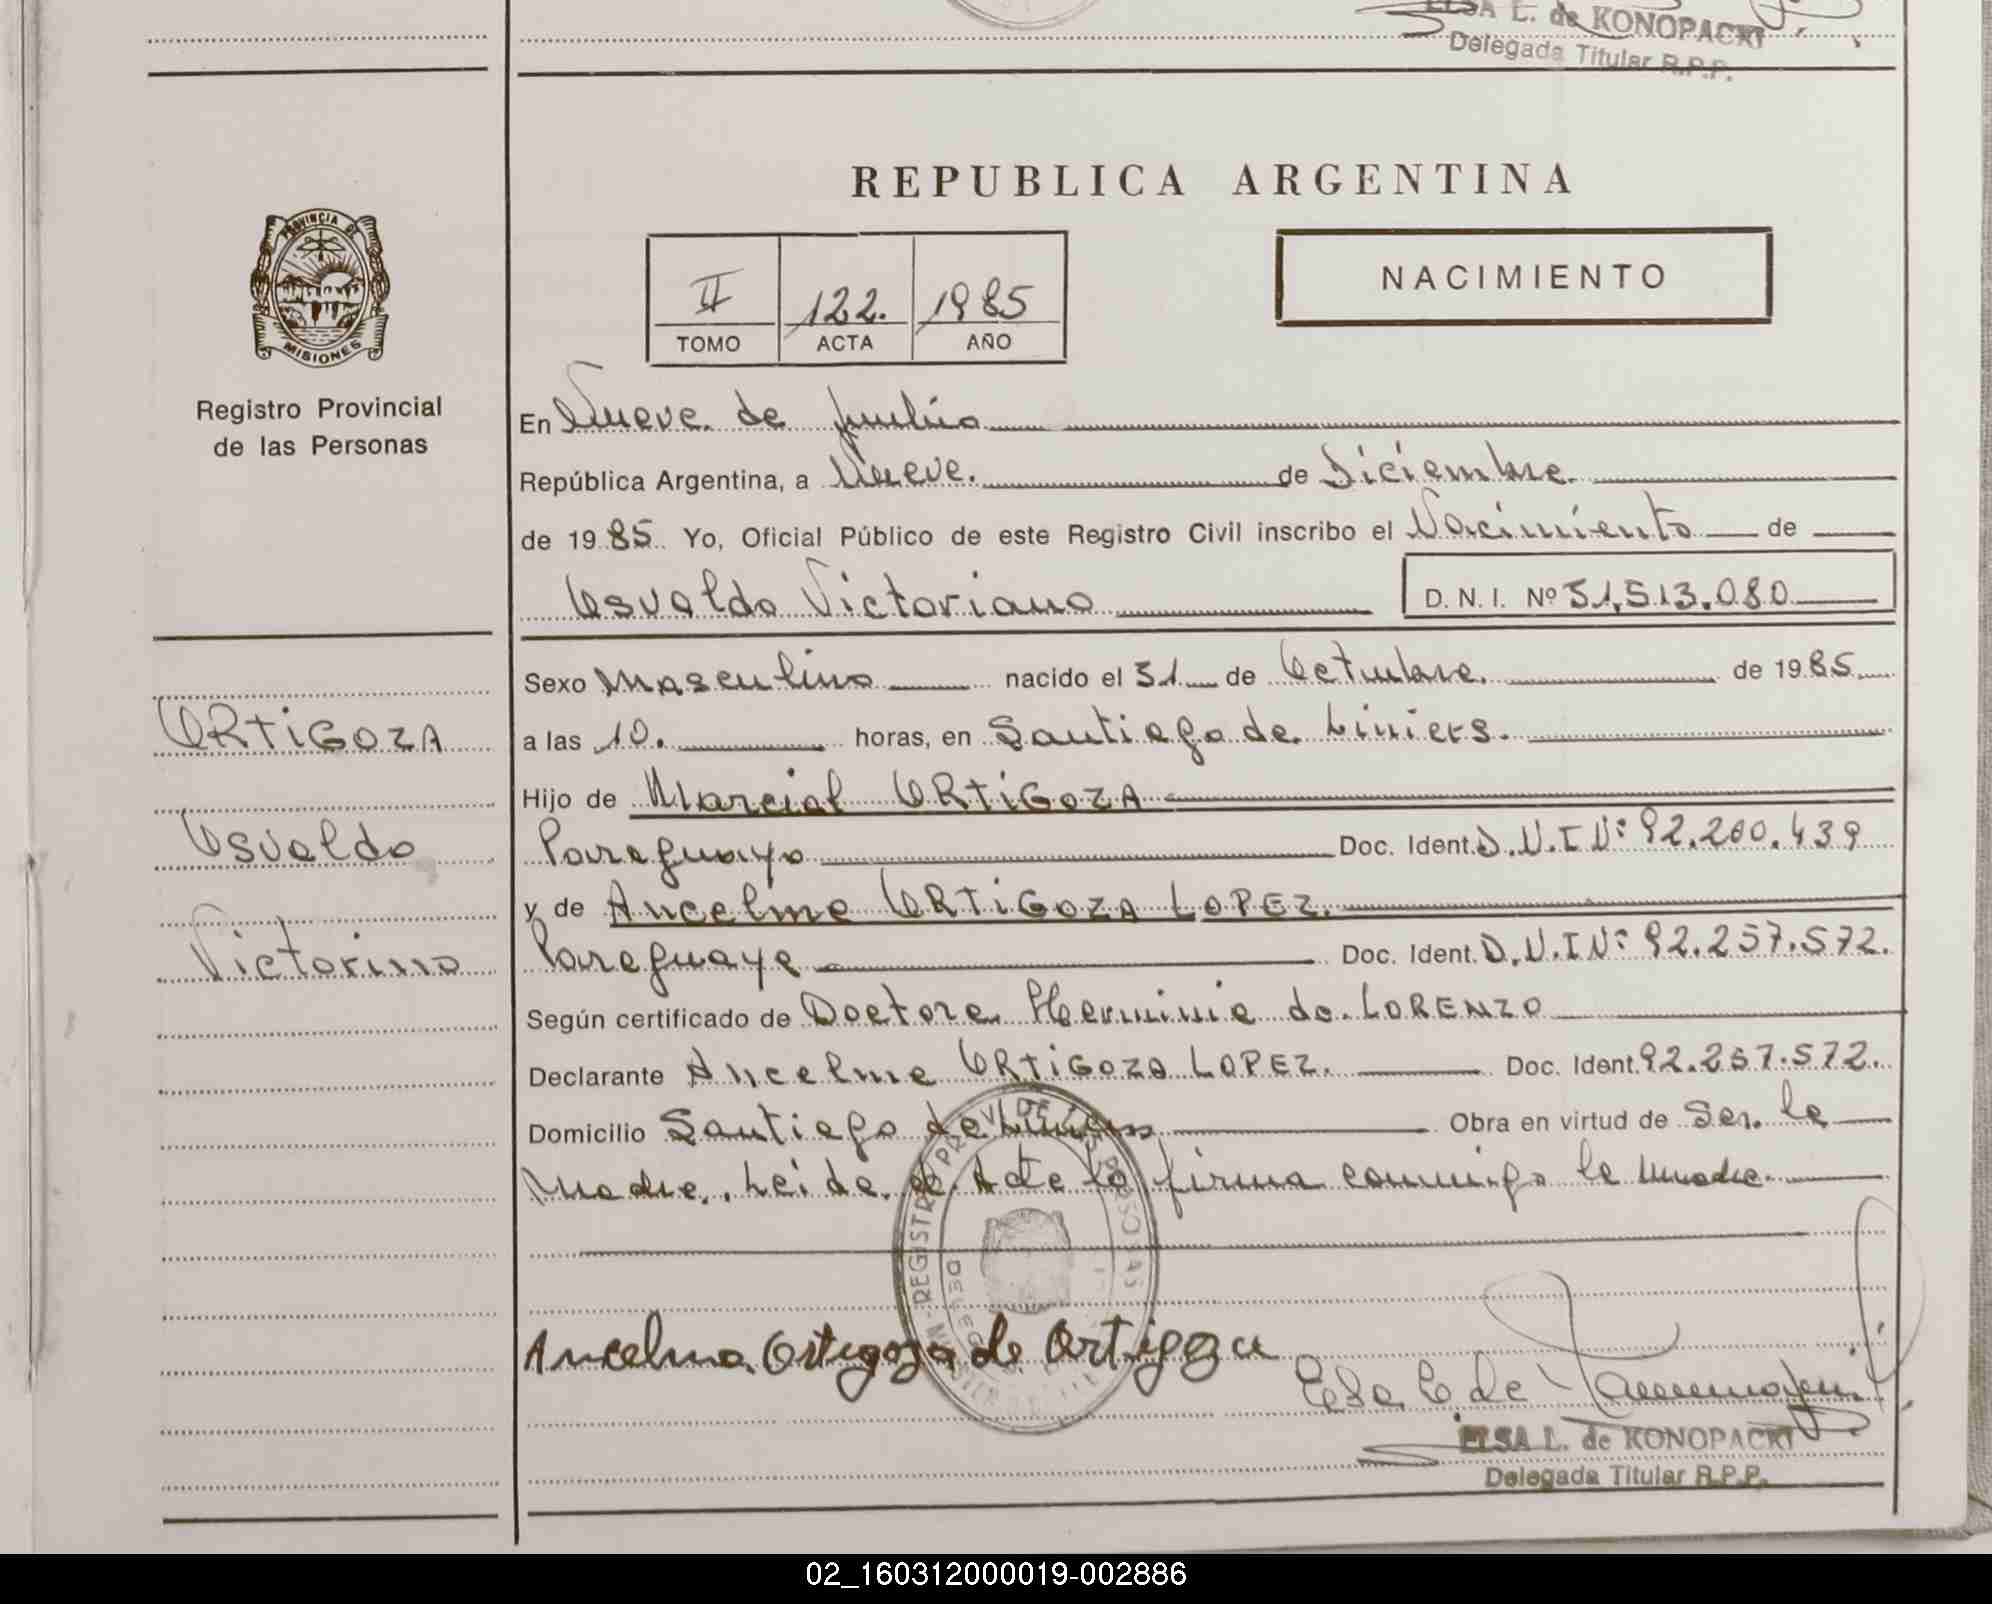 ELSA L. de KONOPACKI
Delegada Titular R.P.P.
REPUBLICA ARGENTINA
PROVINCIA DE
MISIONES
Registro Provincial
de las Personas
II 122. 1985
TOMO ACTA AÑO
NACIMIENTO
En Nueve de Julio
República Argentina, a Nueve. de Diciembre.
de 1985. Yo, Oficial Público de este Registro Civil inscribo el Nacimiento de
Osvaldo Victoriano D.N.I. Nº 31.513.080
Sexo Masculino nacido el 31 de Octubre. de 1985
a las 10. horas, en Santiago de Liniers.
Hijo de Marcial ORTiGOZA
Paraguayo Doc. Ident. D.N.I N: 92.260.439
y de Ancelma ORTiGOZA LOPEZ.
Paraguaya Doc. Ident. D.N.I N: 92.257.572.
Según certificado de Doctora Herminia do LORENZO
Declarante Ancelma ORTiGOZA LOPEZ. Doc. Ident. 92.257.572.
Domicilio Santiago de Liniers Obra en virtud de Ser. la
Madre. Leida el Acta la firma conmigo la Madre.
ORTiGOZA
Osvaldo
Victorino
Ancelma Ortigoza de Ortigoza
Elsa L de
ELSA L. de KONOPACKI
Delegada Titular R.P.P.
02_160312000019-002886